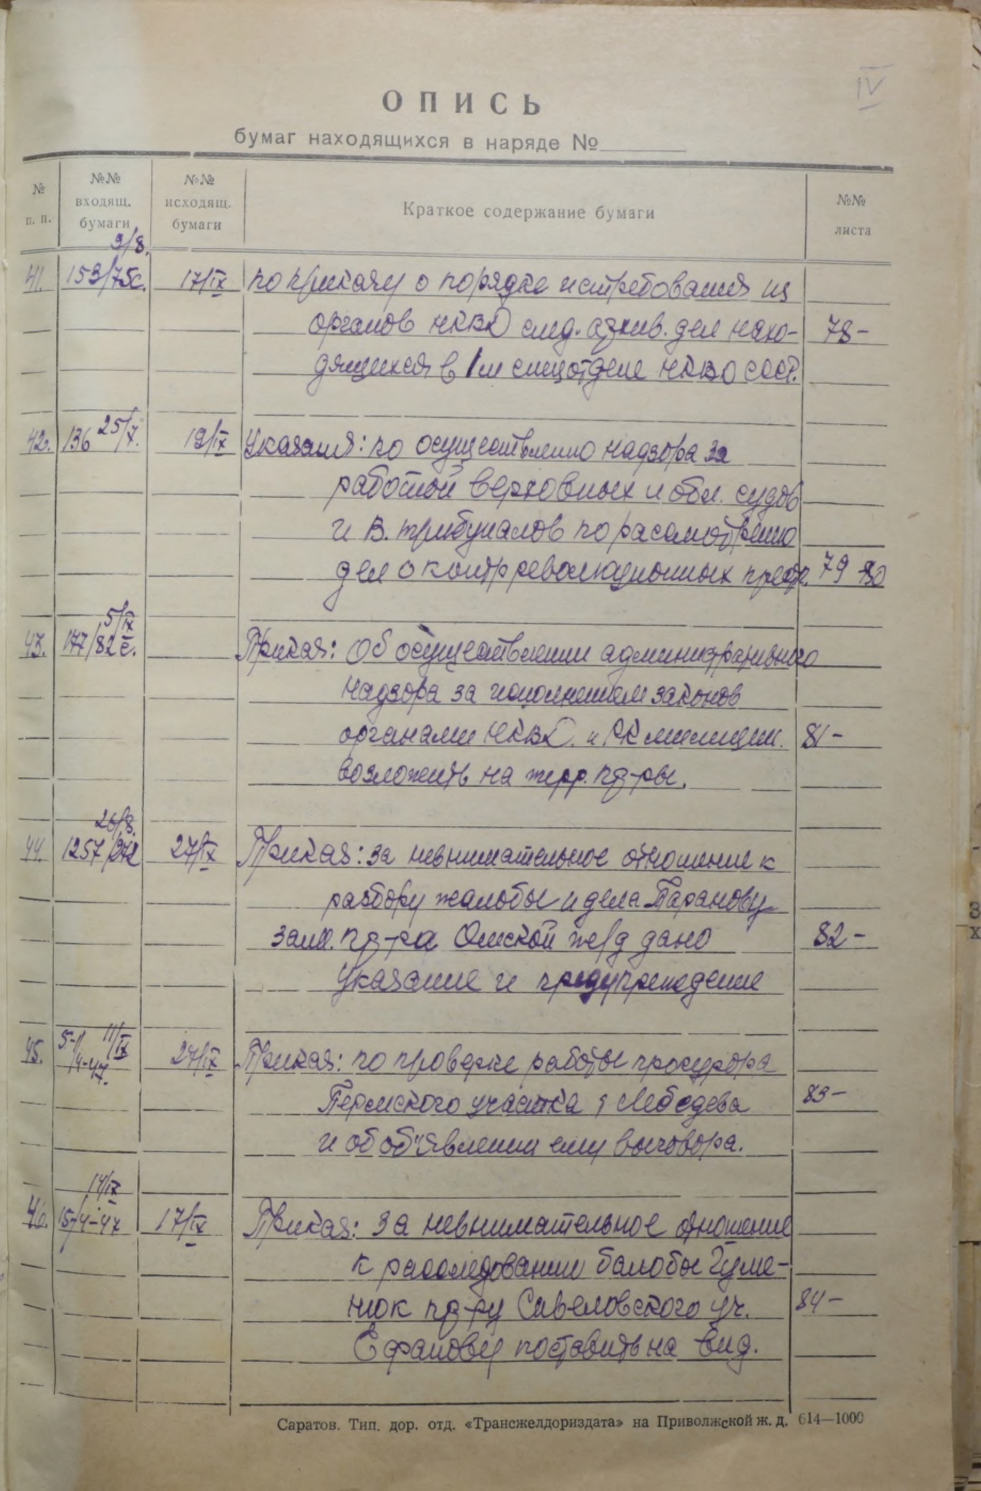 IV
ОПИСЬ
бумаг находящихся в наряде №
№ п. п. №№ входящ. бумаги №№ исходящ. бумаги Краткое содержание бумаги №№ листа
9/8.
41. 153/75с. 17/IX по приказу о порядке истребования из
органов НКВД след. архив. дел нахо- 78-
дящихся в 1м спецотделе НКВД СССР.
42. 136 25/X. 19/IX Указания: по осуществлению надзора за
работой верховных и обл. судов
и В. трибуналов по рассмотрению
дел о контрреволюционных прест. 79 80
5/IX
43. 177/82с. Приказ: Об осуществлении административного
надзора за исполнением законов
органами НКВД. и РК милиции. 81-
возложить на терр. пр-ры.
26/8.
44. 1257/272 27/IX Приказ: за невнимательное отношение к
разбору жалобы и дела Таранову
зам. пр-ра Омской ж/д дано 82-
указание и предупреждение
11/IX
45. 5-1/4-47. 27/IX Приказ: по проверке работы прокурора
Пермского участка т Лебедева 83-
и об об'явлении ему выговора.
14/IX
46. 15/4-47 17/IX Приказ: За невнимательное отношение
к расследованию жалобы Гуме-
нюк пр-ру Савеловского уч. 84-
Ефанову поставить на вид.
Саратов. Тип. дор. отд. «Трансжелдориздата» на Приволжской ж. д. 614—1000